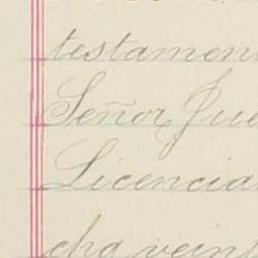 testamen
Señor Jue
Licencia
cha veint